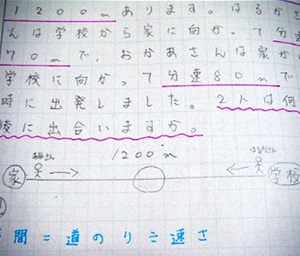 1200mあります。はるか
んは学校から家に向かって分速
70mで、おかあさんは家か
学校に向かって分速80mで
時に出発しました。2人は何
後に出合いますか。
1200m
家
学校
間=道のり÷速さ